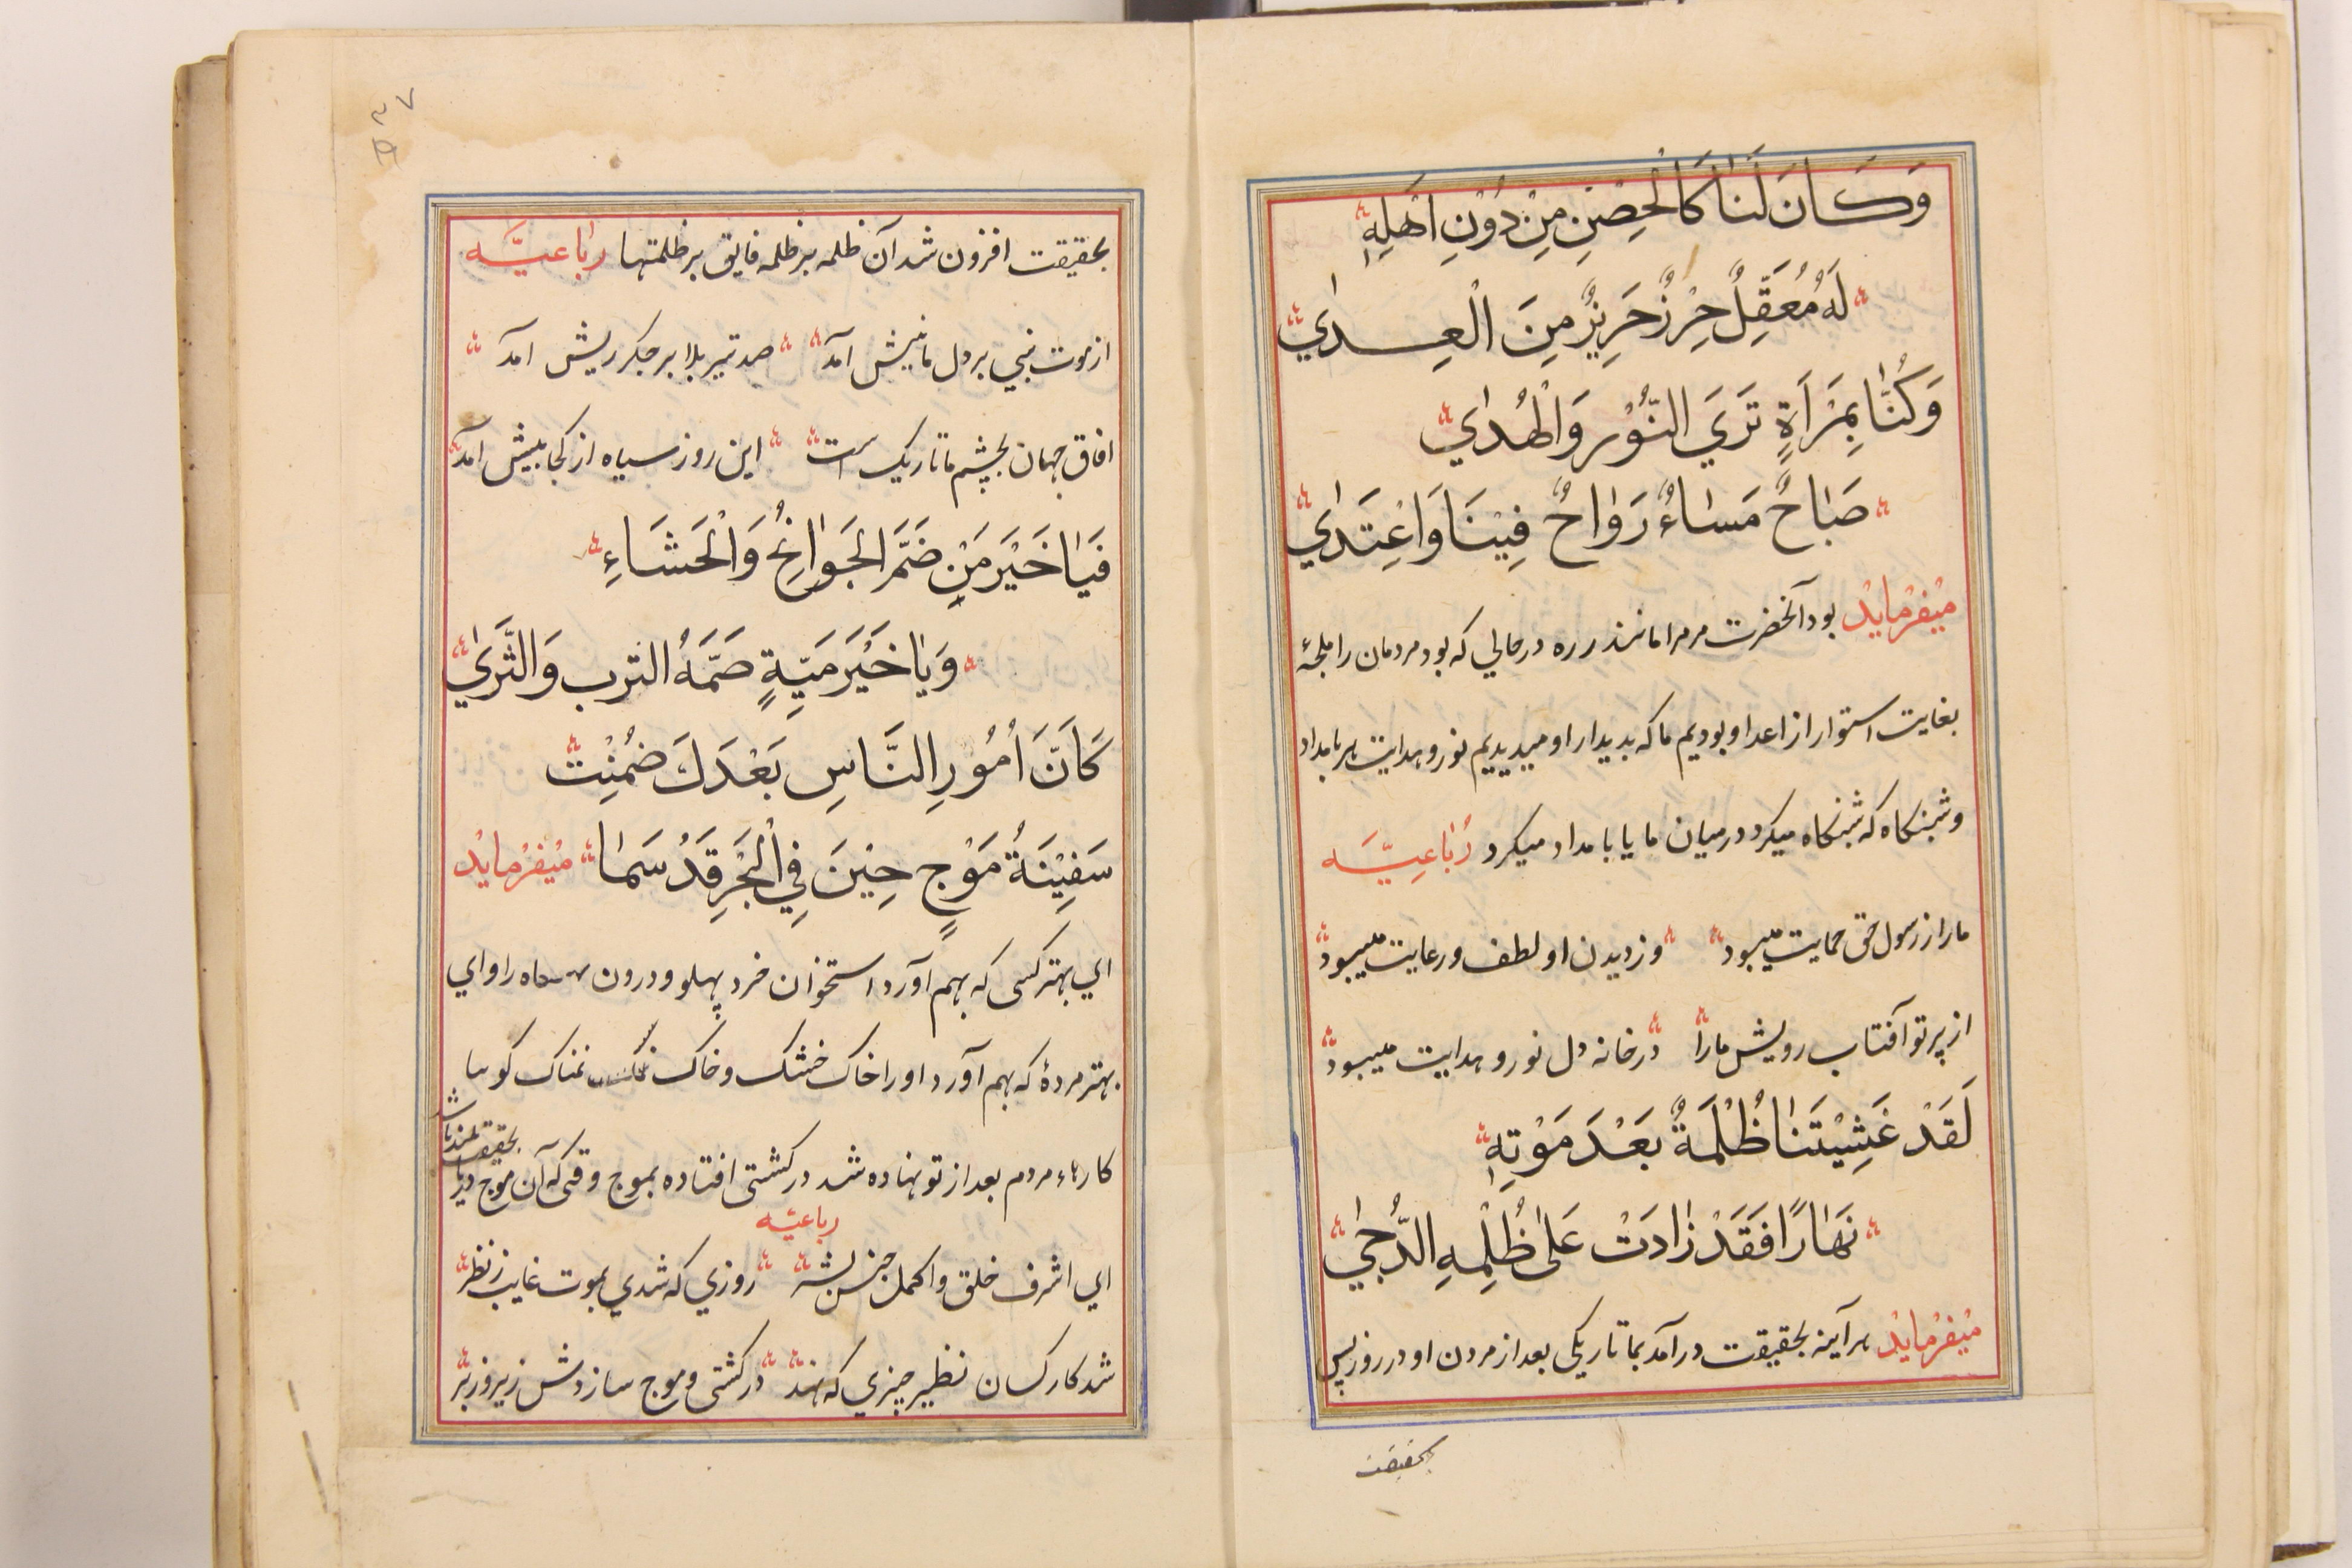 وَكَانَ لَنَا كَالْحِصْنِ مِنْ دُوْنِ اَهْلِهٖ
لَهُ مُعَقِلٌ حِرْزٌ حَرِيْزٌ مِنَ الْعِدٰي
وَكُنَّا بِمَرْاَةٍ تَرَيَ النُّوْرَ وَالْهُدٰي
صَبَاحٌ مَسَاءٌ رَوَاحٌ فِيْنَا وَاعْتَدٰي
میفرماید بود آنحضرت مر مرا مانند دره در حالي که بود مردمان را ملجئ
بغایت استوار از اعدا و بودیم ما که بدیدار او میدیدیم نور و هدایت هر بامداد
و شبنکاه که شبنکاه میکرد در میان ما یا بامداد میکرد رباعیّه
ما را ز رسول حق حمایت میبود وز دیدن او لطف و رعایت میبود
از پرتو آفتاب رویش ما را در خانه دل نور و هدایت میبود
لَقَدْ غَشِيْتَنَا ظُلْمَةٌ بَعْدَ مَوْتِهٖ
نَهَارًا فَقَدْ زَادَتْ عَلٰى ظُلْمِهِ الدُّجٰي
میفرماید هر آینه بحقیقت در آمد بما تاریکی بعد از مردن او در روز پس
بحقیقت
بحقیقت افزون شد آن ظلمه بر ظلمه فایق بر ظلمتها رباعیّه
از موت نبي بر دل ما نیش آمد صد تیر بلا بر جکر ریش آمد
افاق جهان بچشم ما تاریک است این روز سیاه از کجا بپیش آمد
فَيَا خَيْرَ مَنْ ضَمَّ الْجَوَانِحُ وَالْحَشَاءِ
وَيَا خَيْرَ مَيِّةٍ ضَمَّهُ الترب وَالثَّرٰي
كَاَنَّ اُمُوْرِ النَّاسِ بَعْدَكَ ضُمِنْتْ
سَفِيْنَةُ مَوْجٍ حِيْنَ فِي الْبَحْرِ قَدْ سَمَا میفرماید
اي بهتر کسی که بهم آورد استخوان خرد پهلو و درون راواي
بهتر مردۀ که بهم آورد او را خاک خشک و خاک نمناک کویا
کارهاء مردم بعد از تو نهاده شد در کشتی افتاده بموج وقتی که آن موج دریا
بحقیقت بلند باشد
رباعیّه
اي اشرف خلق و اکمل جنس بشر روزي که شدي بموت غایب ز نظر
شد کار کسان نظیر چیزي که نهند در کشتی و موج سازدش زیر و زبر